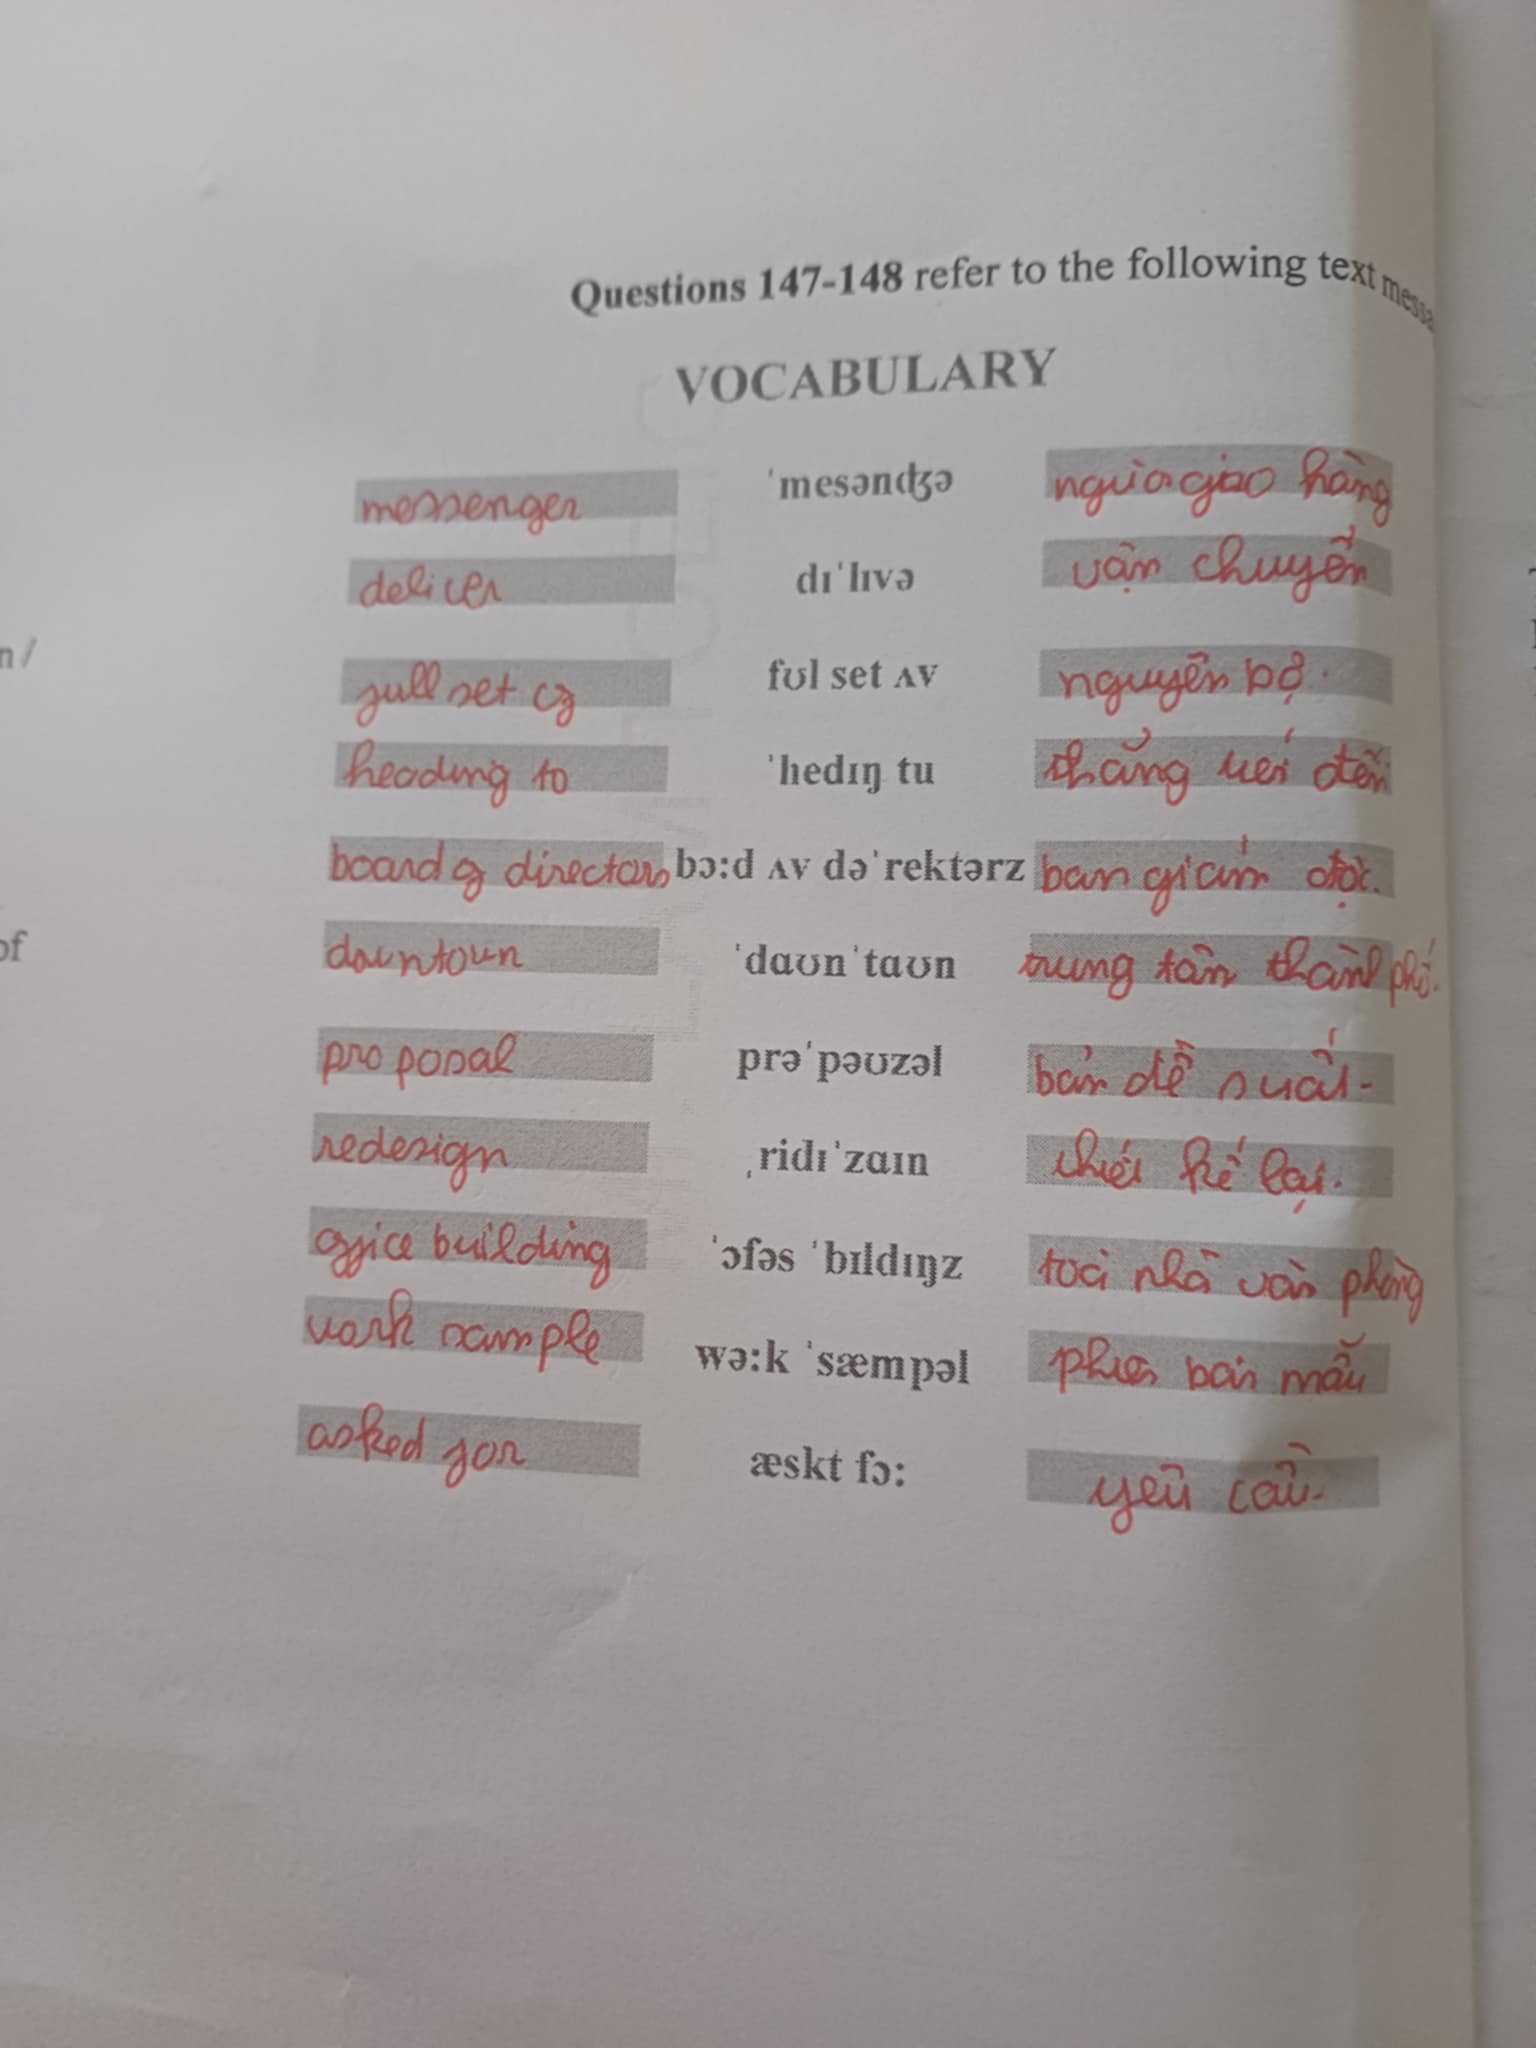 Questions 147-148 refer to the following text messa
VOCABULARY
messenger ˈmesənʤə người giao hàng
deliver dɪˈlɪvə vận chuyển
n /
full set of fʊl set ʌv nguyên bộ.
heading to ˈhedɪŋ tu thẳng tới đến
board of directors bɔ:d ʌv dəˈrektərz ban giám đốc.
of
downtown ˈdaʊnˈtaʊn trung tâm thành phố.
proposal prəˈpəʊzəl bản đề xuất.
redesign ˌridɪˈzaɪn thiết kế lại.
office building ˈɔfəs ˈbɪldɪŋz toà nhà văn phòng
work sample wə:k ˈsæmpəl phiên bản mẫu
asked for æskt fɔ: yêu cầu.